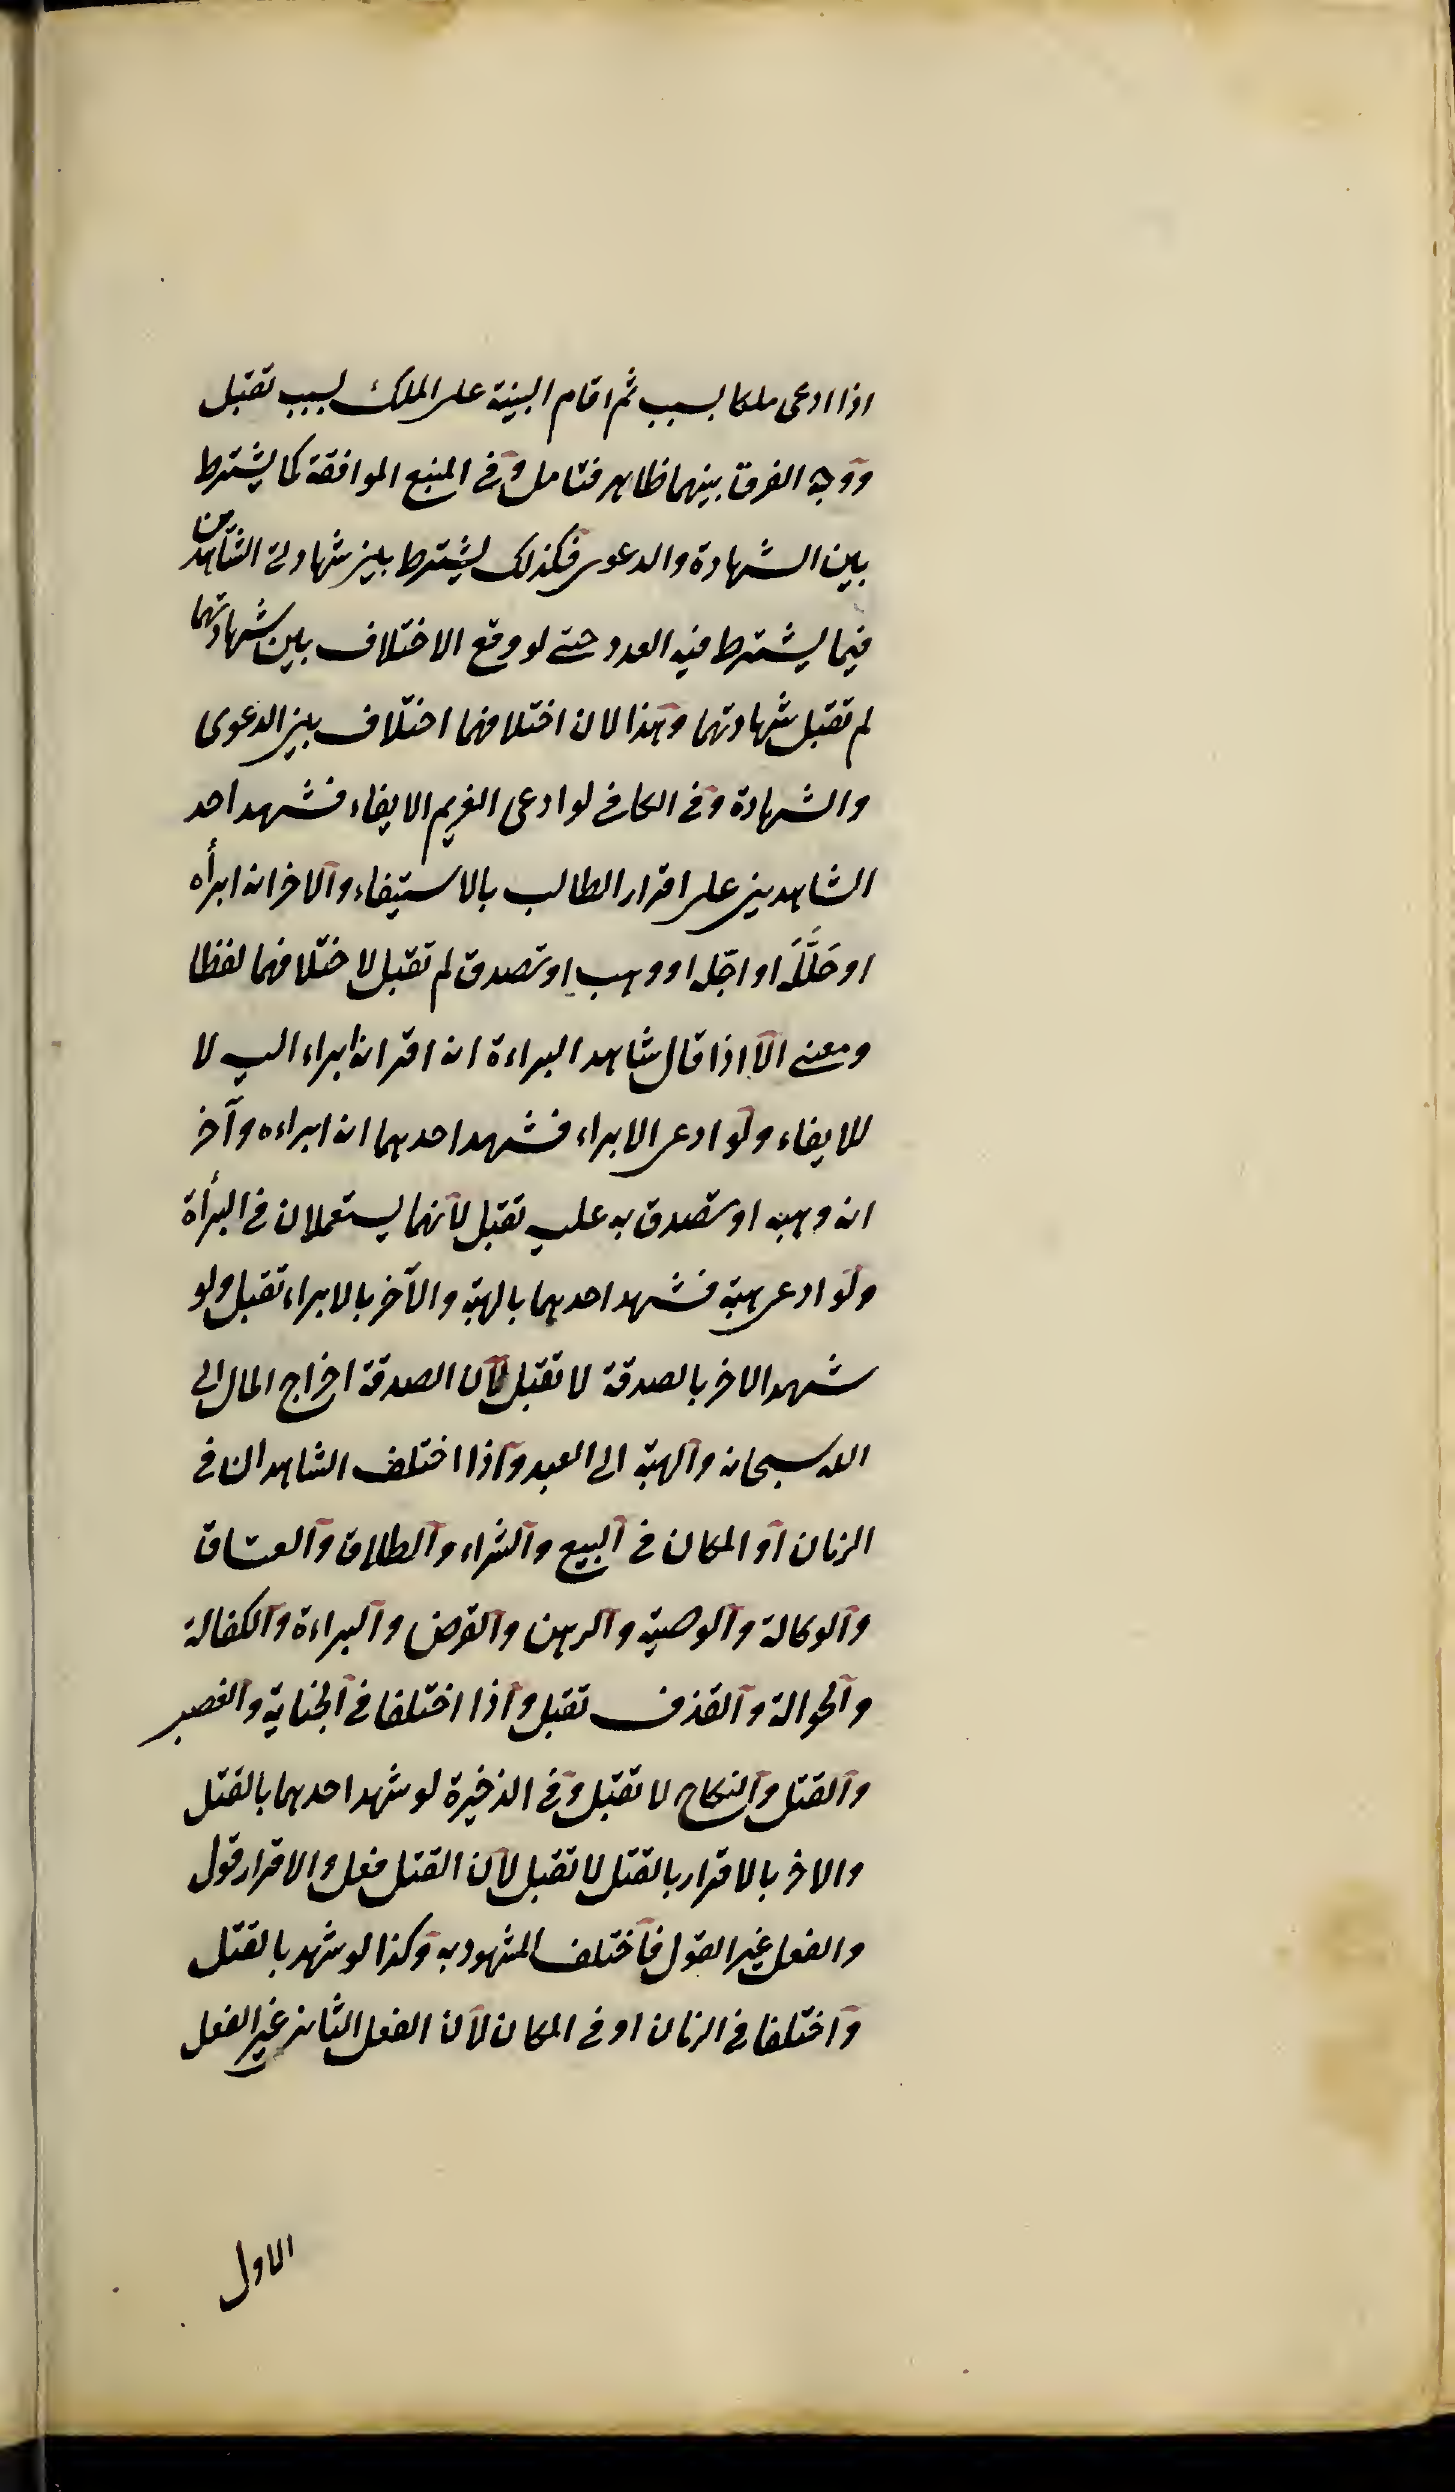 اذا ادعى ملكا بسبب ثم اقام البينة على الملك بسبب تقبل
ووجه الفرق بينهما ظاهر فتامل وفي المنبع الموافقة كما يشترط
بين الشهادة والدعوى فكذلك يشترط بين شهادتي الشاهدين
فيما يشترط فيه العدد حتى لو وقع الاختلاف بين شهادتهما
لم تقبل شهادتهما وهذا لان اختلافهما اختلاف بين الدعوى
والشهادة وفي الكافي لو ادعى الغريم الايفاء فشهد احد
الشاهدين على اقرار الطالب بالاستيفاء والاخر انه ابرأه
او حَلَّلَه او اجّله او وهبه او تصدق لم تقبل لاختلافهما لفظا
ومعنى الّا اذا قال شاهد البراءة انه اقر انه ابراء اليه لا
للايفاء ولو ادعى الابراء فشهد احدهما انه ابراءه وآخر
انه وهبه او تصدق به عليه تقبل لانهما يستعملان في البرأة
ولو ادعى هبة فشهد احدهما بالهبة والآخر بالابراء تقبل ولو
شهد الاخر بالصدقة لا تقبل لان الصدقة اخراج المال الى
الله سبحانه والهبة الى العبد واذا اختلف الشاهدان في
الزمان او المكان في البيع والشراء والطلاق والعتاق
والوكالة والوصية والرهن والقرض والبراءة والكفالة
والحوالة والقذف تقبل واذا اختلفا في الجناية والغصب
والقتل والنكاح لا تقبل وفي الذخيرة لو شهد احدهما بالقتل
والاخر بالاقرار بالقتل لا تقبل لان القتل فعل والاقرار قول
والفعل غير القول فاختلف المشهود به وكذا لو شهد بالقتل
واختلفا في الزمان او في المكان لان الفعل الثاني غير الفعل
الاول